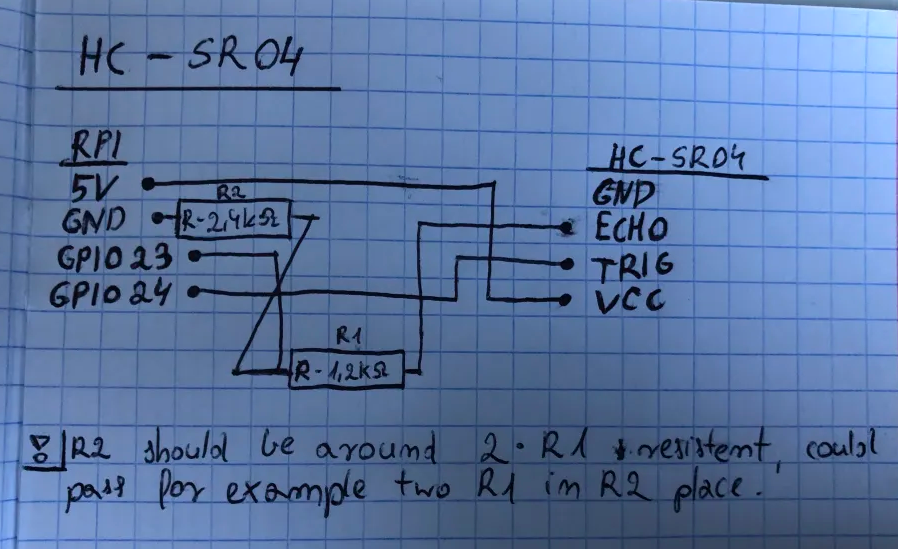 HC - SR04
RPI
5V
GND
GPIO 23
GPIO 24
R2
R-2,4kΩ
R1
R-1,2kΩ
HC-SR04
GND
ECHO
TRIG
VCC
R2 should be around 2·R1 resistent, could
pass for example two R1 in R2 place.